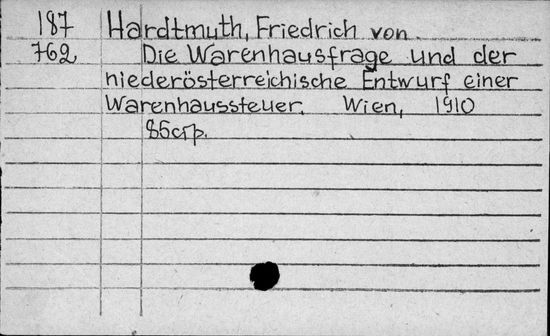 187 Hardtmuth, Friedrich von.
762 Die Warenhausfrage und der
niederösterreichische Entwurf einer
Warenhaussteuer. Wien, 1910
85стр.